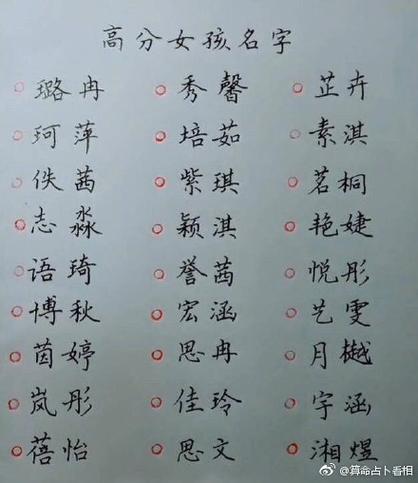 高分女孩名字
璐冉 秀馨 芷卉
珂萍 培茹 素淇
佚茜 紫琪 茗桐
志淼 颖淇 艳婕
语琦 誉茜 悦彤
博秋 宏涵 艺雯
茵婷 思冉 月樾
岚彤 佳玲 宇涵
蓓怡 思文 湘煜
@算命占卜看相